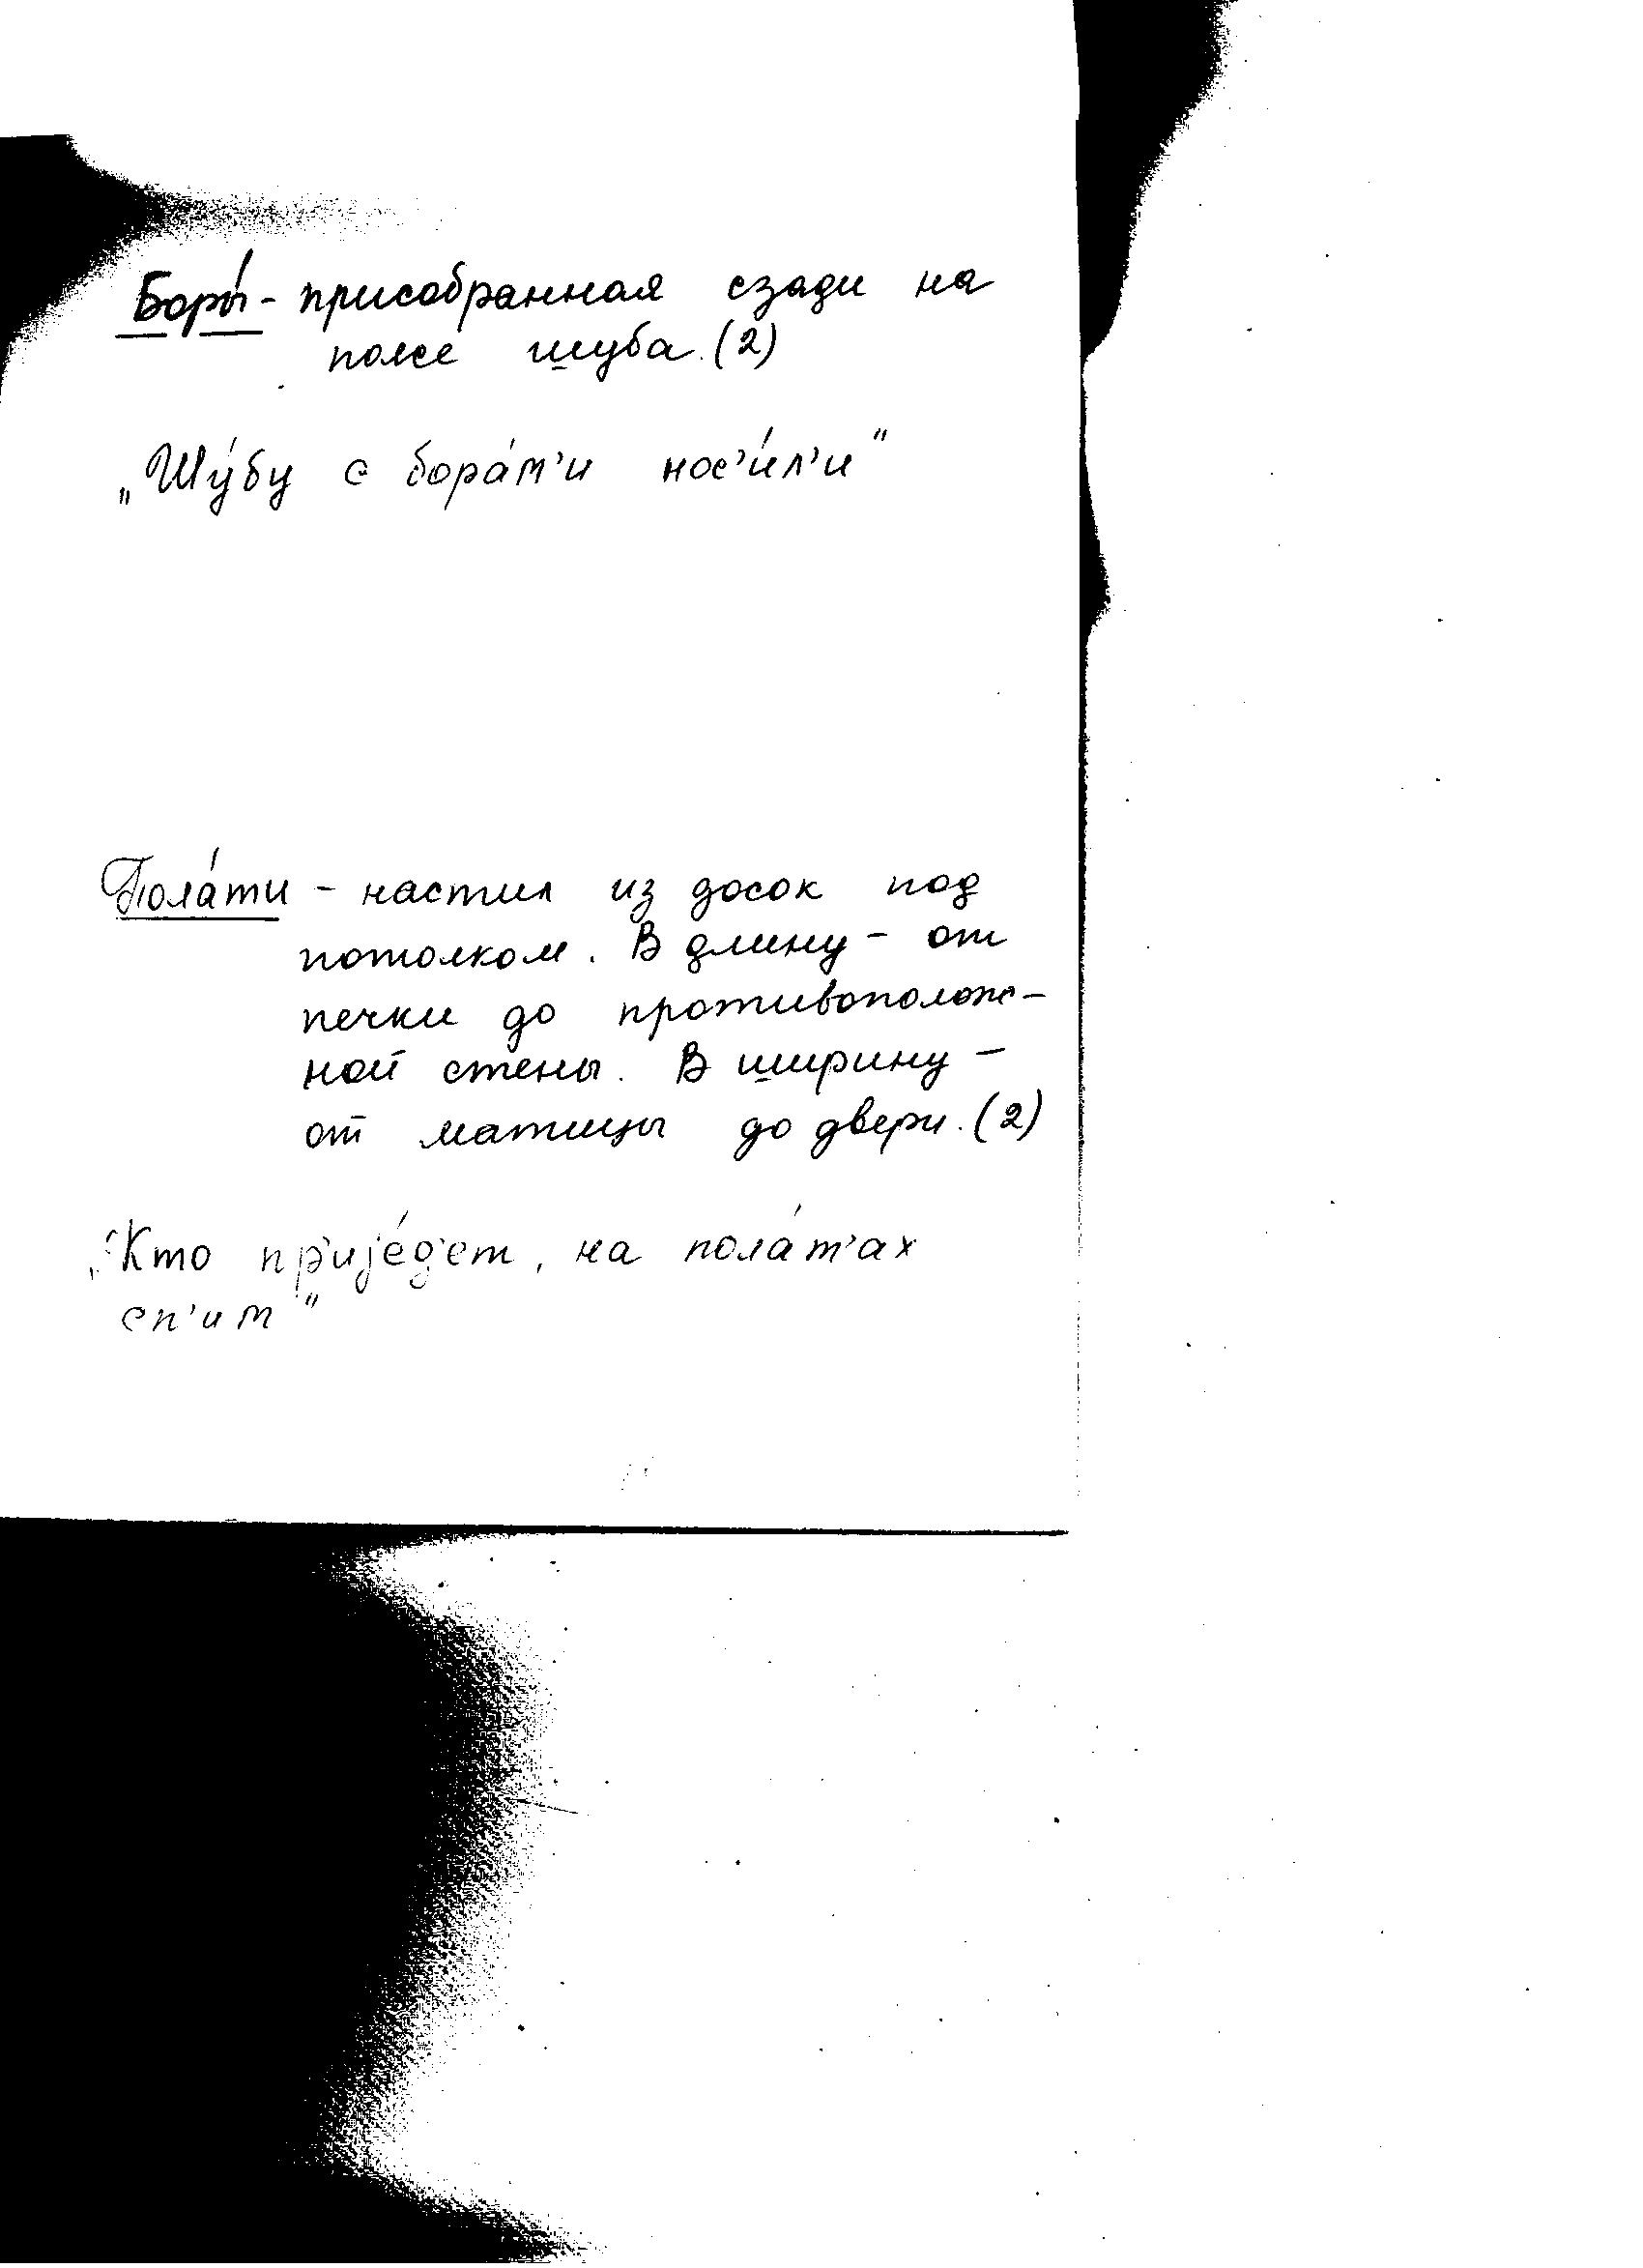 Боры́ - присобранная сзади на
поясе шуба. (2)
„Шу́бу с бора́м'и нос'и́л'и"
Пола́ти - настил из досок под
потолком. В длину - от
печки до противополож-
ной стены. В ширину -
от матицы до двери. (2)
„Кто пр'ијéд'ет, на пола́т'ах
сп'ит"